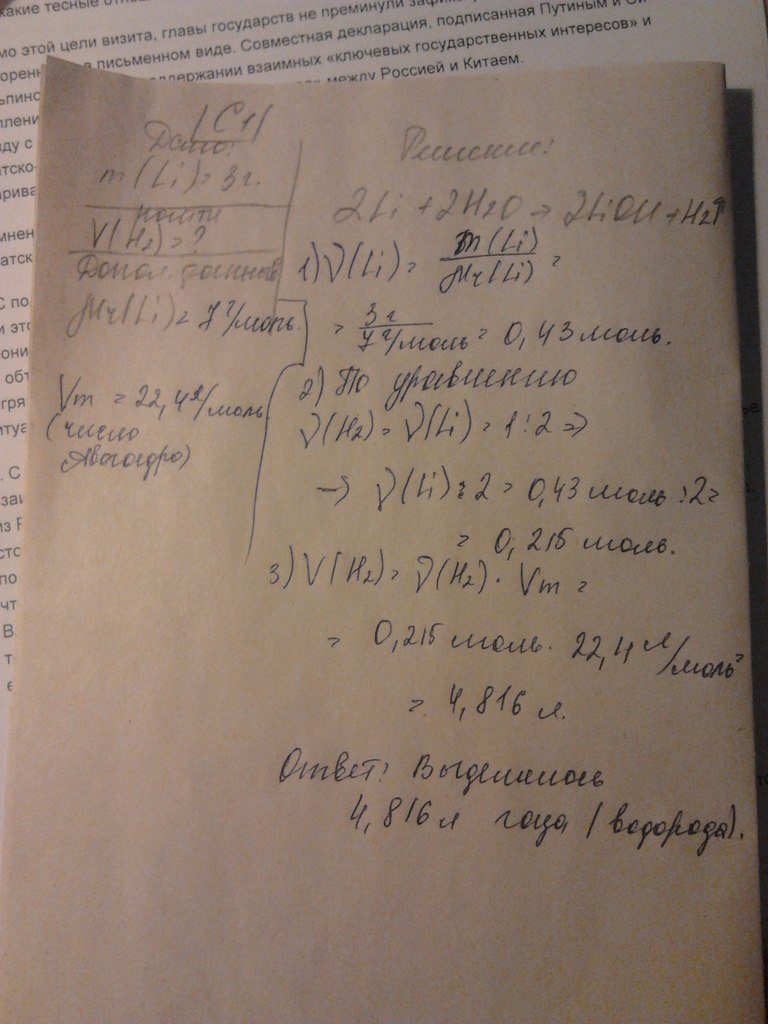 какие тесные отно
мо этой цели визита, главы государств не преминули
письменном виде. Совместная декларация, подписанная Путиным и
ддержании взаимных «ключевых государственных интересов» и
между Россией и Китаем.
|C1|
Дано:
m(Li)=3г.
найти
V(H2)=?
Допол. данные
Mr(Li)=7г/моль.
Vm = 22,4л/моль
(число
Авогадро)
Решение:
2Li + 2H2O → 2LiOH + H2↑
1) ν(Li) = m(Li)/Mr(Li) =
= 3г/7г/моль = 0,43 моль.
2) По уравнению
ν(H2) = ν(Li) = 1:2 ⇒
→ ν(Li):2 = 0,43 моль :2=
= 0,215 моль.
3) V(H2) = ν(H2) · Vm =
= 0,215 моль · 22,4 л/моль=
= 4,816 л.
Ответ: Выделилось
4,816 л газа (водорода).